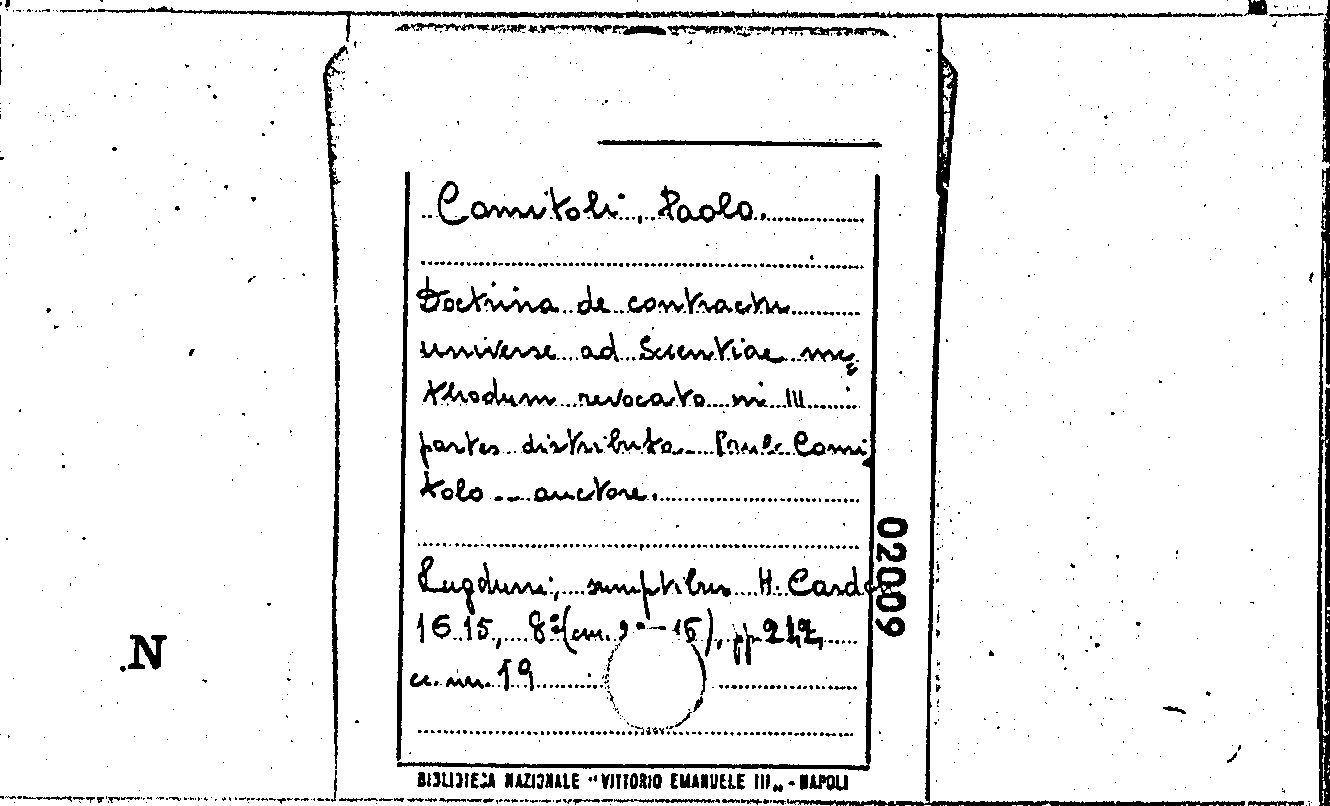 Comitoli, Paolo.
Doctrina de contractu
universe ad Scientiae me
thodum revocato in III
partes distributa. Paulo Comi
tolo .. auctore.
Lugduni, sumptibus H. Cardo
1615, 8° (cm. 15), pp 242,
cc. nn. 19
02009
N
BIBLIOTECA NAZIONALE "VITTORIO EMANUELE III" - NAPOLI